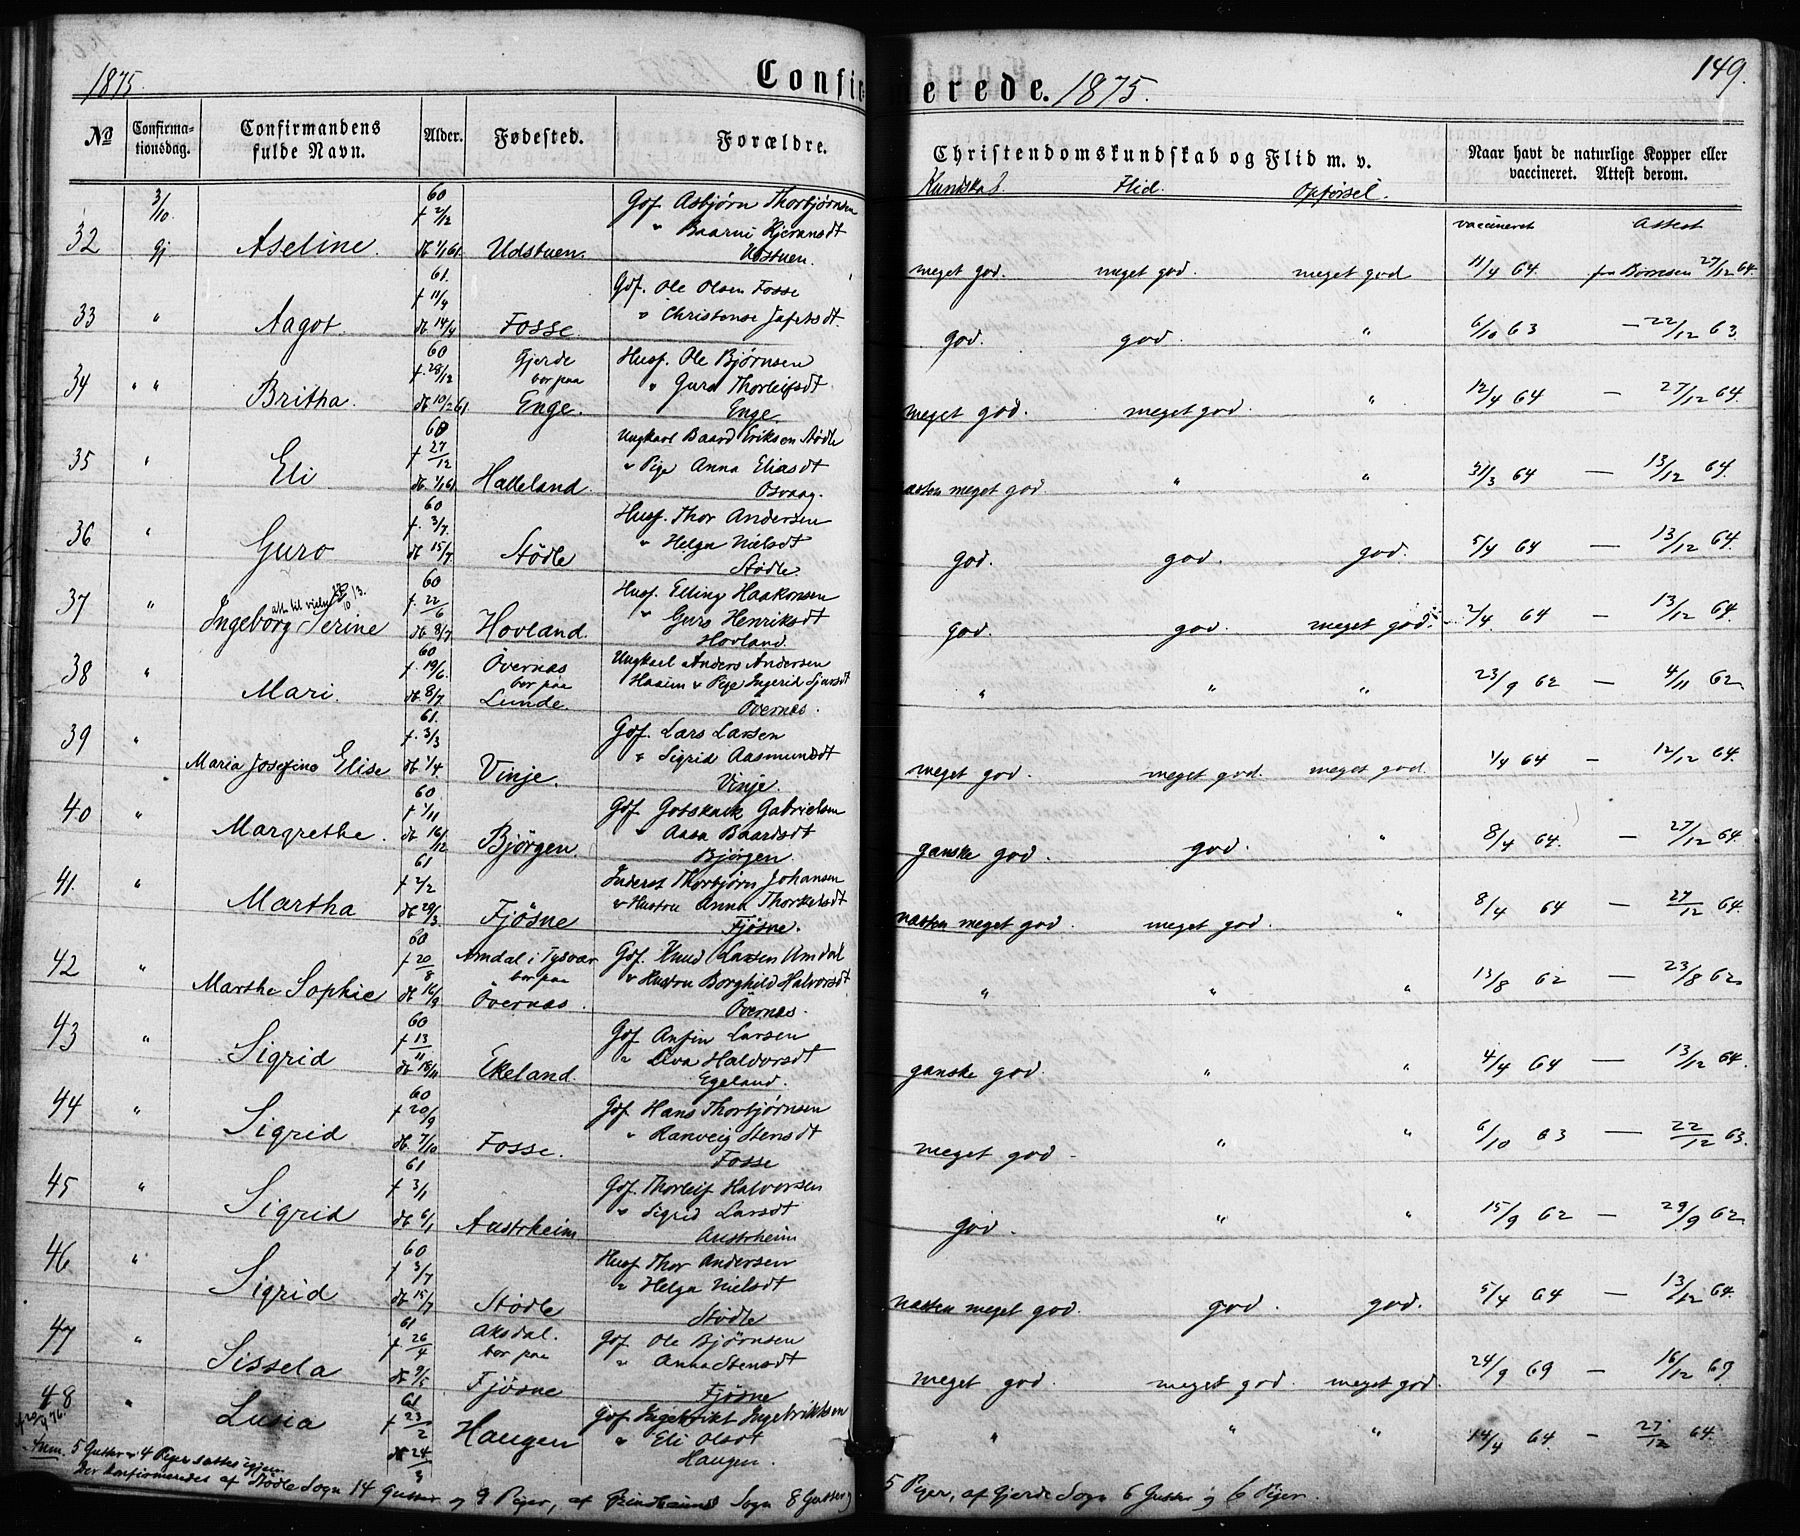 1875.
Confirmerede. 1875.
149.
No Confirmationsdag. Confirmandens fulde Navn. Alder. Fødested. Forældre. Christendomskundskab og Flid m. v. Naar havt de naturlige Kopper eller vaccineret. Attest derom.
Kundskab. Flid. Opførsel. vaccineret Attest
3/10. 60 Gdf. Asbjørn Thorbjørnsen
f 2/12 " Baarni Kjeransdt
32 Gj Aseline. db 1/1 61. Udstuen. Udstuen. meget god. meget god. meget god 11/4 64. fra Börresen 27/12 64.
61. Gdf. Ole Olsen Fosse
f 11/4 " Christense Jafetsdt.
33 " Aagot. db 14/4 Fosse. god. god. " 6/10 63 — 22/12 63.
60 Gjerde Husf. Ole Bjørnsen
f. 28/12 bor paa " Guro Thorleifsdt.
34 " " Britha. db 10/2 61 Enge. Enge. meget god. meget god. " 12/4 64 — 27/12 64.
60 Ungkarl Baard Eriksen Stødle
f 27/12 " Pige Anna Eliasdt
35 " Eli db. 1/1 61 Halleland. Osvaag. næsten meget god " " 31/3 64 — 13/12 64.
60 Husf. Thor Andersen
f. 3/7 " Helga Nielsdt
36 " Guro db 15/7. Stödle Stödle. god. god. god. 5/4 64 — 13/12 64.
60 Husf. Elling Haakonsen
att. til vielse
f. 22/6 " Guro Henriksdt
37 " Ingeborg Serine db 8/7 Hovland. Hovland. god. god. meget god. 2/4. 64 — 13/12 64.
60 Övernæs Ungkarl Anders Andersen
f. 19/6. bor paa
38 " Mari. db. 8/7 Lunde. Övernæs. " " " 23/9 62 — 4/11 62
61. Gdf. Lars Larsen
f. 3/3 " Sigrid Aasmundsdt
39 " Maria Josefine Elise db 1/4. Vinje. Vinje. meget god. meget god. meget god. 1/4 64 — 12/12 64.
60 Gdf Gotskalk Gabrielsen
f 1/11 " Aasa Baardsdt
40 " Margrethe. db 16/12 Björgen. Björgen. ganske god. god. " 8/4 64. — 27/12 64.
61 Inderst Thorbjörn Johansen
f 2/2 " Hustru Anna Thorkelsdt
41. " Martha db 29/3. Fjösne Fjösne. næsten meget god. meget god. " 8/4 64 — 27/12 64.
60 Amdal i Tysvær Gdf. Knud Larsen Amdal
f 20/8 bor paa " Hustru Borghild Halvorsdt
42 " Marthe Sophie db 16/9. Övernæs. Övernæs. " " " 13/8 62 — 23/8 62
60 Gdf Anfin Larsen
f 13/11 " Elva Haldorsdt
43 " Sigrid db 18/11 Ekeland. Egeland. ganske god. " " 4/4 64 — 13/12 64.
60 Gdf. Hans Thorbjørnsen
f 20/9 " Ranveig Stensdt
44 " Sigrid db. 7/10 Fosse. Fosse meget god. " " 6/10 63 — 22/12 63.
61 Gdf. Thorleif Halvorsen
f 3/1 " Sigrid Larsdt
45 " Sigrid db 6/1 Austrheim Austrheim god. " " 15/9 62 — 29/9 62
60 Husf Thor Andersen
f 3/7 " Helga Nielsdt
46 " Sigrid db 15/7 Stödle Stödle næsten meget god. god. god. 5/4 64 — 13/12 64.
61 Aksdal. Gdf Ole Bjørnsen
f 26/4 bor paa " Anna Stensdt
47 " Sissela db 9/5 Fjösne Fjösne meget god. meget god. meget god. 24/9 69 — 16/12 69.
61 Gdf Ingebrikt Ingebriktsen
f 23/2 " Eli Olsdt
48 " Lusia db 24/3 Haugen Haugen. " " " 14/4 64 — 27/12 64.
Anm. 5 Gutter & 4 Piger sattes igjen.
Der konfirmeredes af Stödle Sogn 14 Gutter og 9 Piger, af Grindheims Sogn 8 Gutter og 5 Piger, af Gjerde Sogn 6 Gutter og 6 Piger.